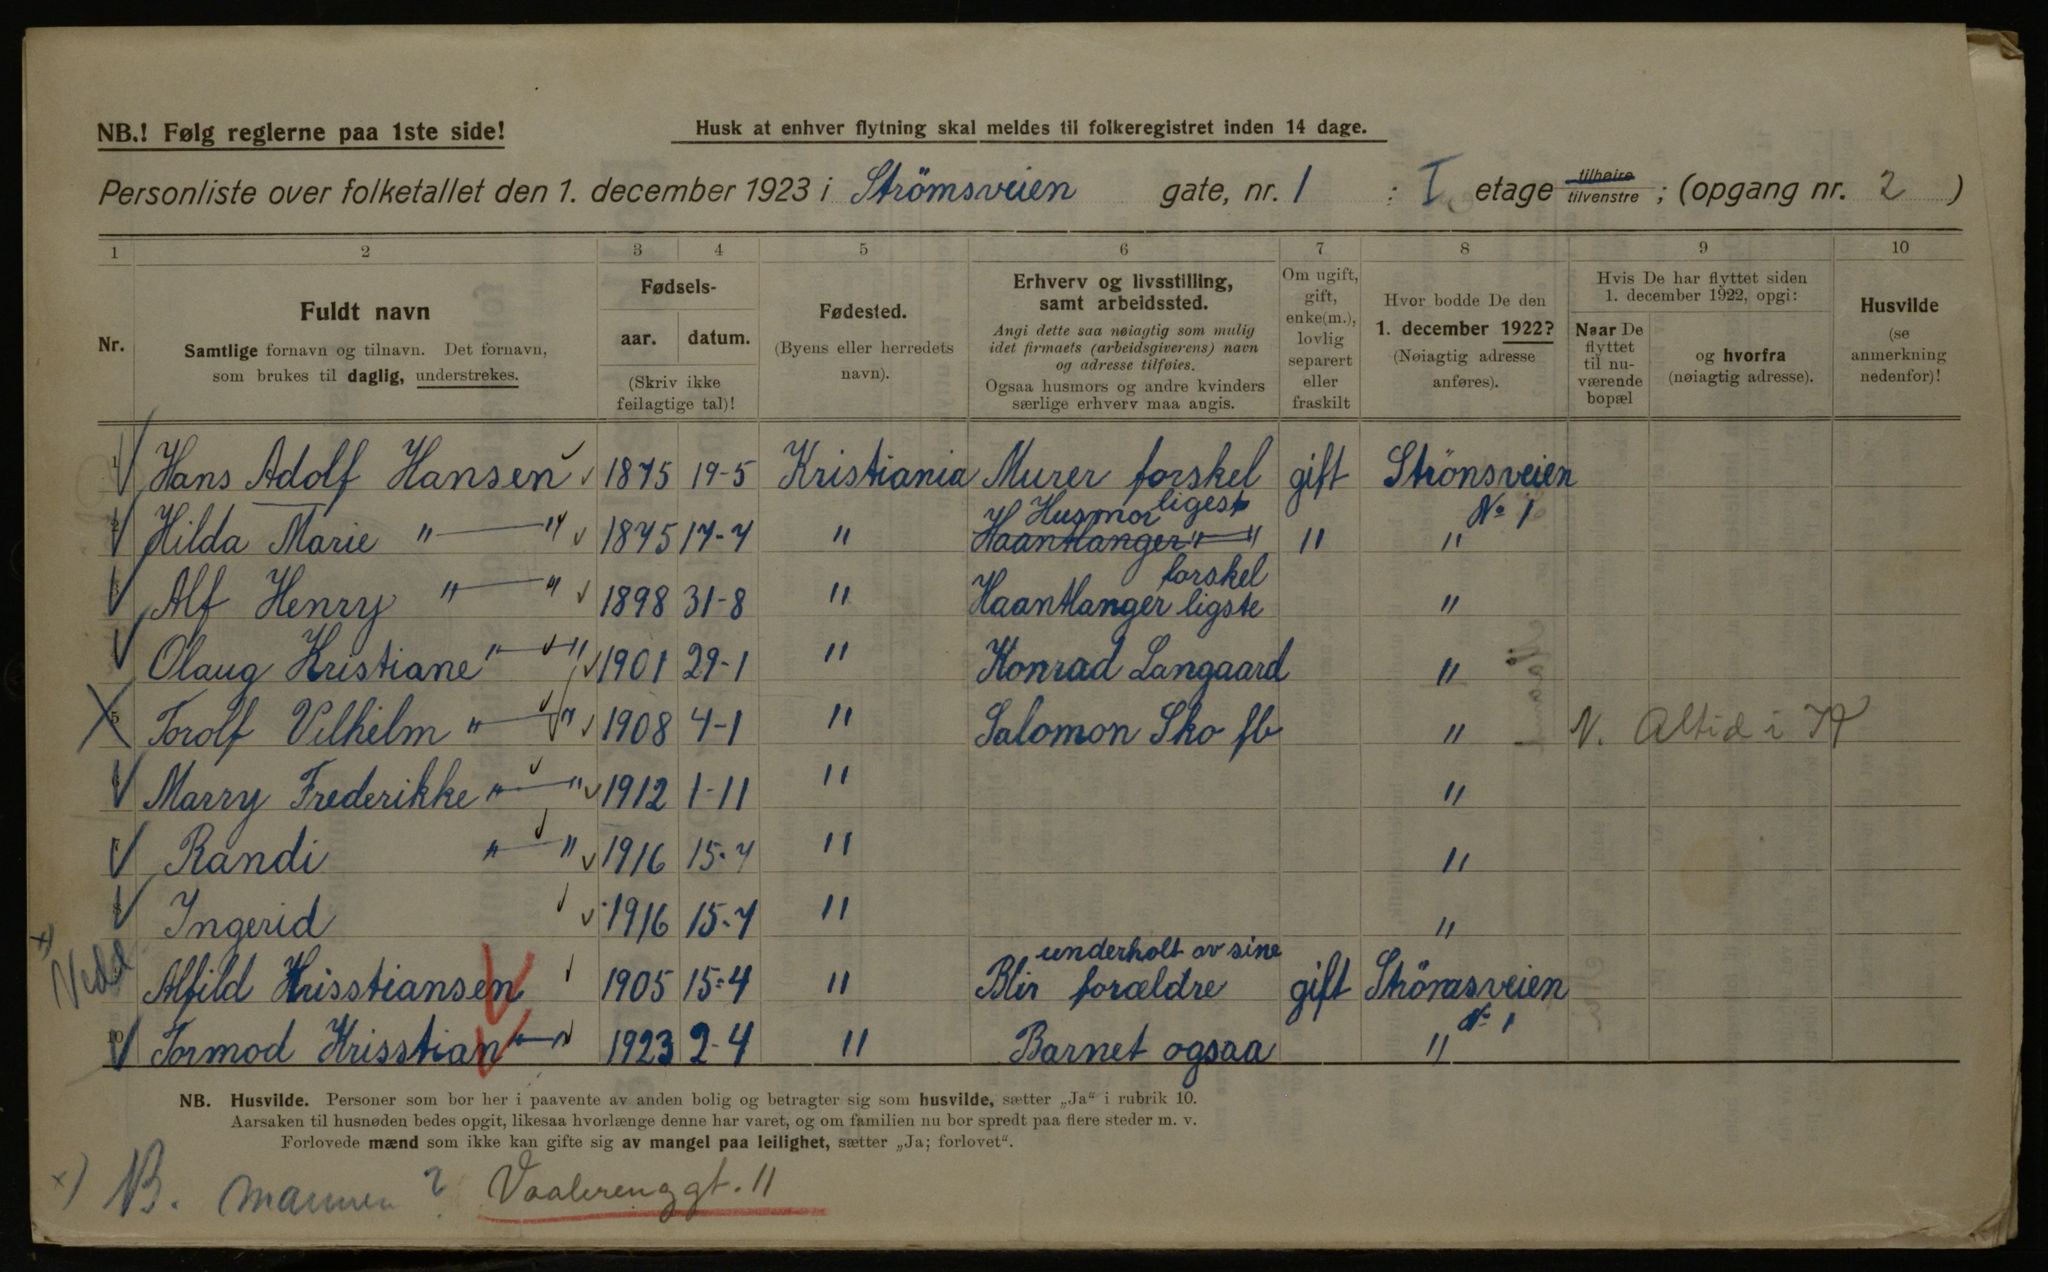 NB.! Følg reglerne paa 1ste side!
Husk at enhver flytning skal meldes til folkeregistret inden 14 dage.
Personliste over folketallet den 1. december 1923 i Strömsveien gate, nr. 1 : I etage tilhøire tilvenstre ; (opgang nr. 2 )
1 2 3 4 5 6 7 8 9 10
Nr.
Fuldt navn
Samtlige fornavn og tilnavn. Det fornavn,
som brukes til daglig, understrekes.
Fødsels-
aar. datum.
(Skriv ikke
feilagtige tal)!
Fødested.
(Byens eller herredets
navn).
Erhverv og livsstilling,
samt arbeidssted.
Angi dette saa nøiagtig som mulig
idet firmaets (arbeidsgiverens) navn
og adresse tilføies.
Ogsaa husmors og andre kvinders
særlige erhverv maa angis.
Om ugift,
gift,
enke(m.),
lovlig
separert
eller
fraskilt
Hvor bodde De den
1. december 1922?
(Nøiagtig adresse
anføres).
Hvis De har flyttet siden
1. december 1922, opgi:
Naar De
flyttet
til nu-
værende
bopæl
og hvorfra
(nøiagtig adresse).
Husvilde
(se
anmerkning
nedenfor)!
1 Hans Adolf Hansen 1875 19-5 Kristiania Murer forskel ligest gift Strönsveien No 1
2 Hilda Marie " — " 1875 17-7 " Husmor Haantlanger " — " " "
3 Alf Henry " — " 1898 31-8 " Haantlanger forskel ligste "
Olaug Kristiane " — " 1901 29-1 " Konrad Langaard "
5 Torolf Vilhelm " — " 1908 4-1 " Salomon Sko fb " N. Altid i
6 Marry Frederikke " — " 1912 1-11 " "
7 Randi " — " 1916 15-7 " "
8 Ingerid 1916 15-7 " "
x)
Alfild Krisstiansen 1905 15-4 " Blir underholt av sine forældre gift Strömsveien No 1
10 Tormod Krisstian " — " 1923 2-4 " Barnet ogsaa "
NB. Husvilde. Personer som bor her i paavente av anden bolig og betragter sig som husvilde, sætter „Ja" i rubrik 10.
Aarsaken til husnøden bedes opgit, likesaa hvorlænge denne har varet, og om familien nu bor spredt paa flere steder m. v.
Forlovede mænd som ikke kan gifte sig av mangel paa leilighet, sætter „Ja; forlovet".
x) NB. mannen ? Vaalerenggt. 11